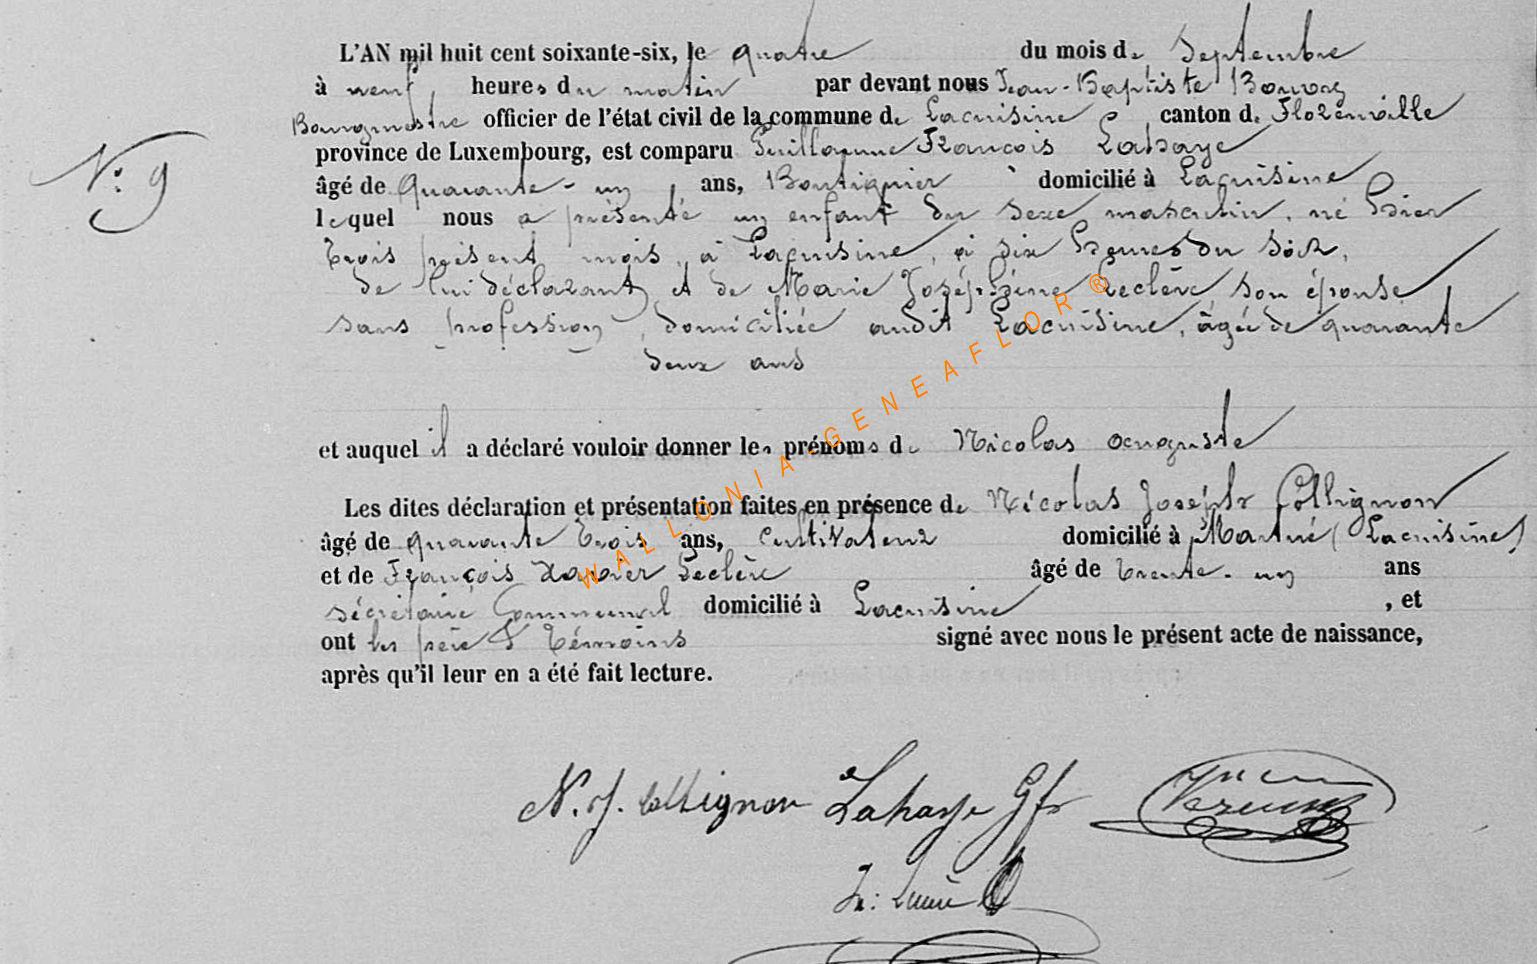 L'AN mil huit cent soixante-six, le quatre du mois de Septembre
à neuf heures du matin par devant nous Jean-Baptiste
Bourgmestre officier de l'état civil de la commune de Lacuisine canton de Florenville
province de Luxembourg, est comparu Guillaume François Lahaye
N: 9
âgé de Quarante-un ans, Boutiquier domicilié à Lacuisine
lequel nous a présenté un enfant du sexe masculin, né hier
trois présent mois, à Lacuisine, à six heures du soir,
de lui déclarant et de Marie Joséphine Leclère son épouse
sans profession, domiciliée audit Lacuisine, âgée de quarante
deux ans
et auquel il a déclaré vouloir donner les prénoms de Nicolas auguste
Les dites déclaration et présentation faites en présence de Nicolas Joseph Collignon
âgé de quarante trois ans, Cultivateur domicilié à Martué (Lacuisine)
et de François Xavier Leclère âgé de trente-un ans
sécrétaire Communal domicilié à Lacuisine , et
ont les père & témoins signé avec nous le présent acte de naissance,
après qu'il leur en a été fait lecture.
N. J. Collignon Lahaye Gfs
WALLONIA-GENEAFLOR®